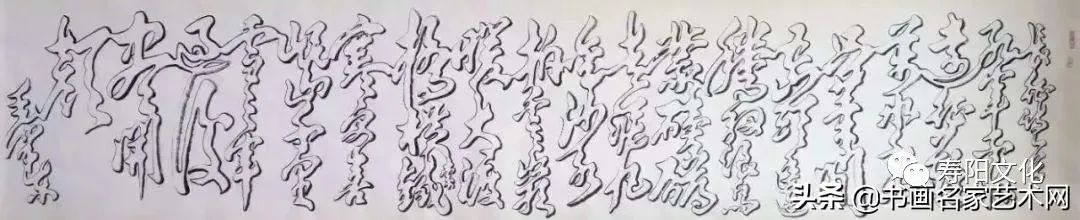 红军不怕
远征难
万水千
山只等闲
五岭逶迤
腾细浪
乌蒙磅礴
走泥丸
金沙水
拍云崖
暖大渡
桥横铁索
寒更喜
岷山千里
雪三军
过后
尽开
颜
毛泽东
寿阳文化
头条 @书画名家艺术网